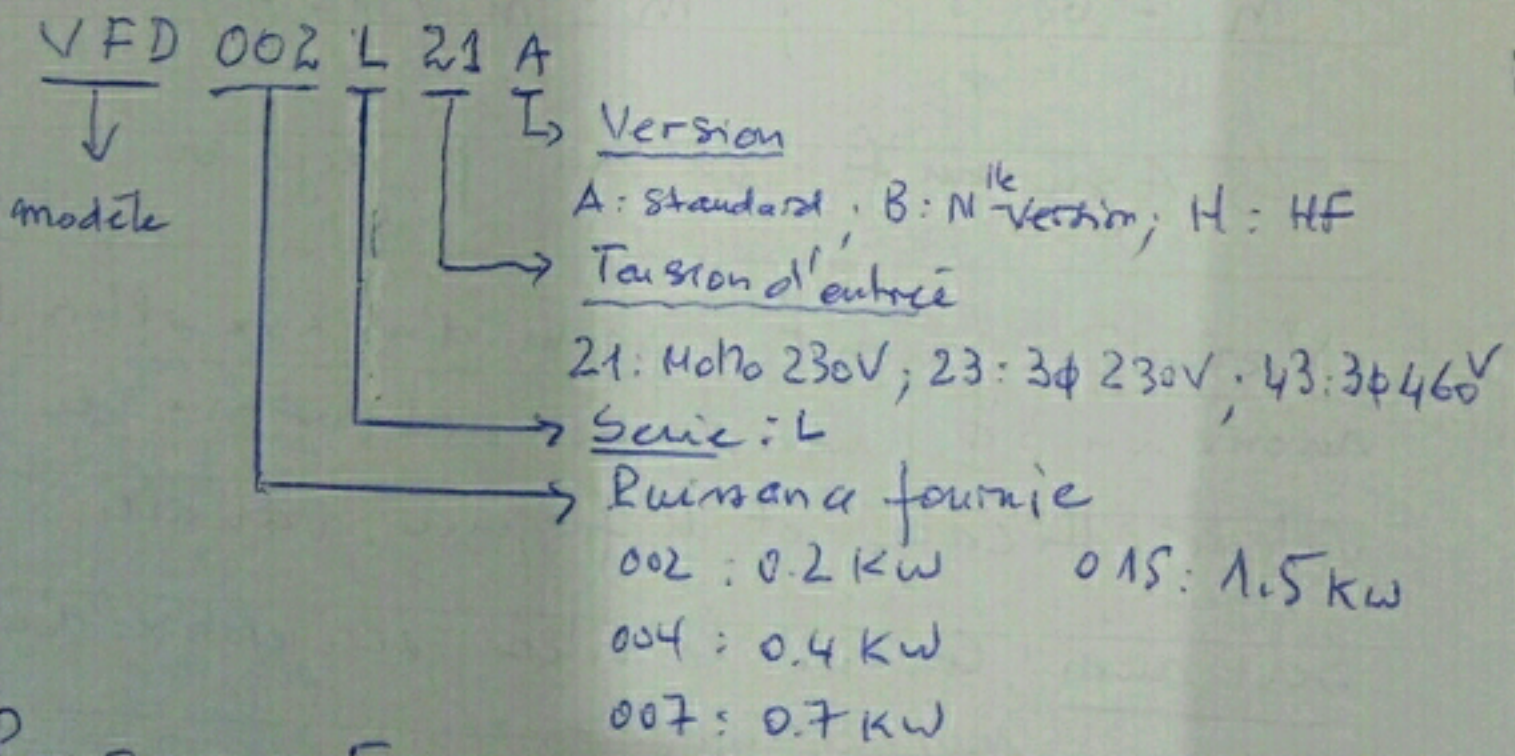 VFD 002 L 21 A
Version
modèle
A: Standard, B: Nlle Version; H: HF
Tension d'entreé
21: Mono 230V; 23: 3ϕ 230V; 43: 3ϕ 460V
Serie: L
Puissance fournie
002 : 0.2 KW 015: 1.5 KW
004 : 0.4 KW
007 : 0.7 KW